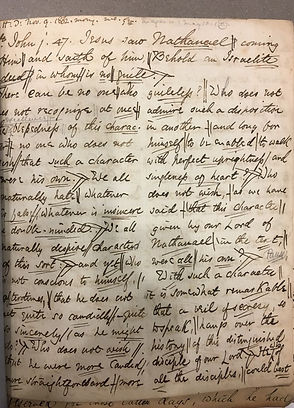 John j. 47. Jesus saw Nathanael coming
him and saith of him, Behold an Israelite
deed in whom is no guile.
There can be no one who
does not recognize at once
blessedness of this charac-
no one who does not
wish that such a character
were his own. We all
naturally hate whatever
is false, whatever is insincere
double-minded. We all
naturally despise characters
of this sort and yet who
not conscious to himself,
at times, that he does not
quite so candidly quite
so sincerely as he might
do? Who does not wish
that he were more candid,
more straightforward, more
guileless? Who does not
admire such a disposition
in another and long for
himself to be enabled to walk
with perfect uprightness and
singleness of heart? Who
does not wish as we have
said that this character
given by our Lord of
Nathanael in the text,
were all his own?
With such a character
it is somewhat remarkable
that a veil of secrecy so
to speak, hangs over the
history of this distinguished
disciple of our Lord. He of
all the disciples, could best
these latter days, which he had